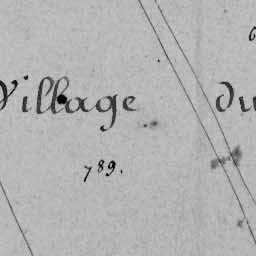 Village du
789.